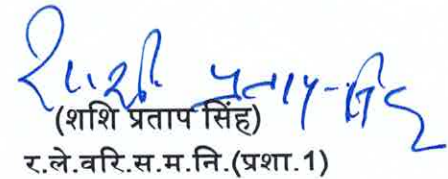 शशी प्रताप सिंह
(शशि प्रताप सिंह)
र.ले.वरि.स.म.नि.(प्रशा.1)